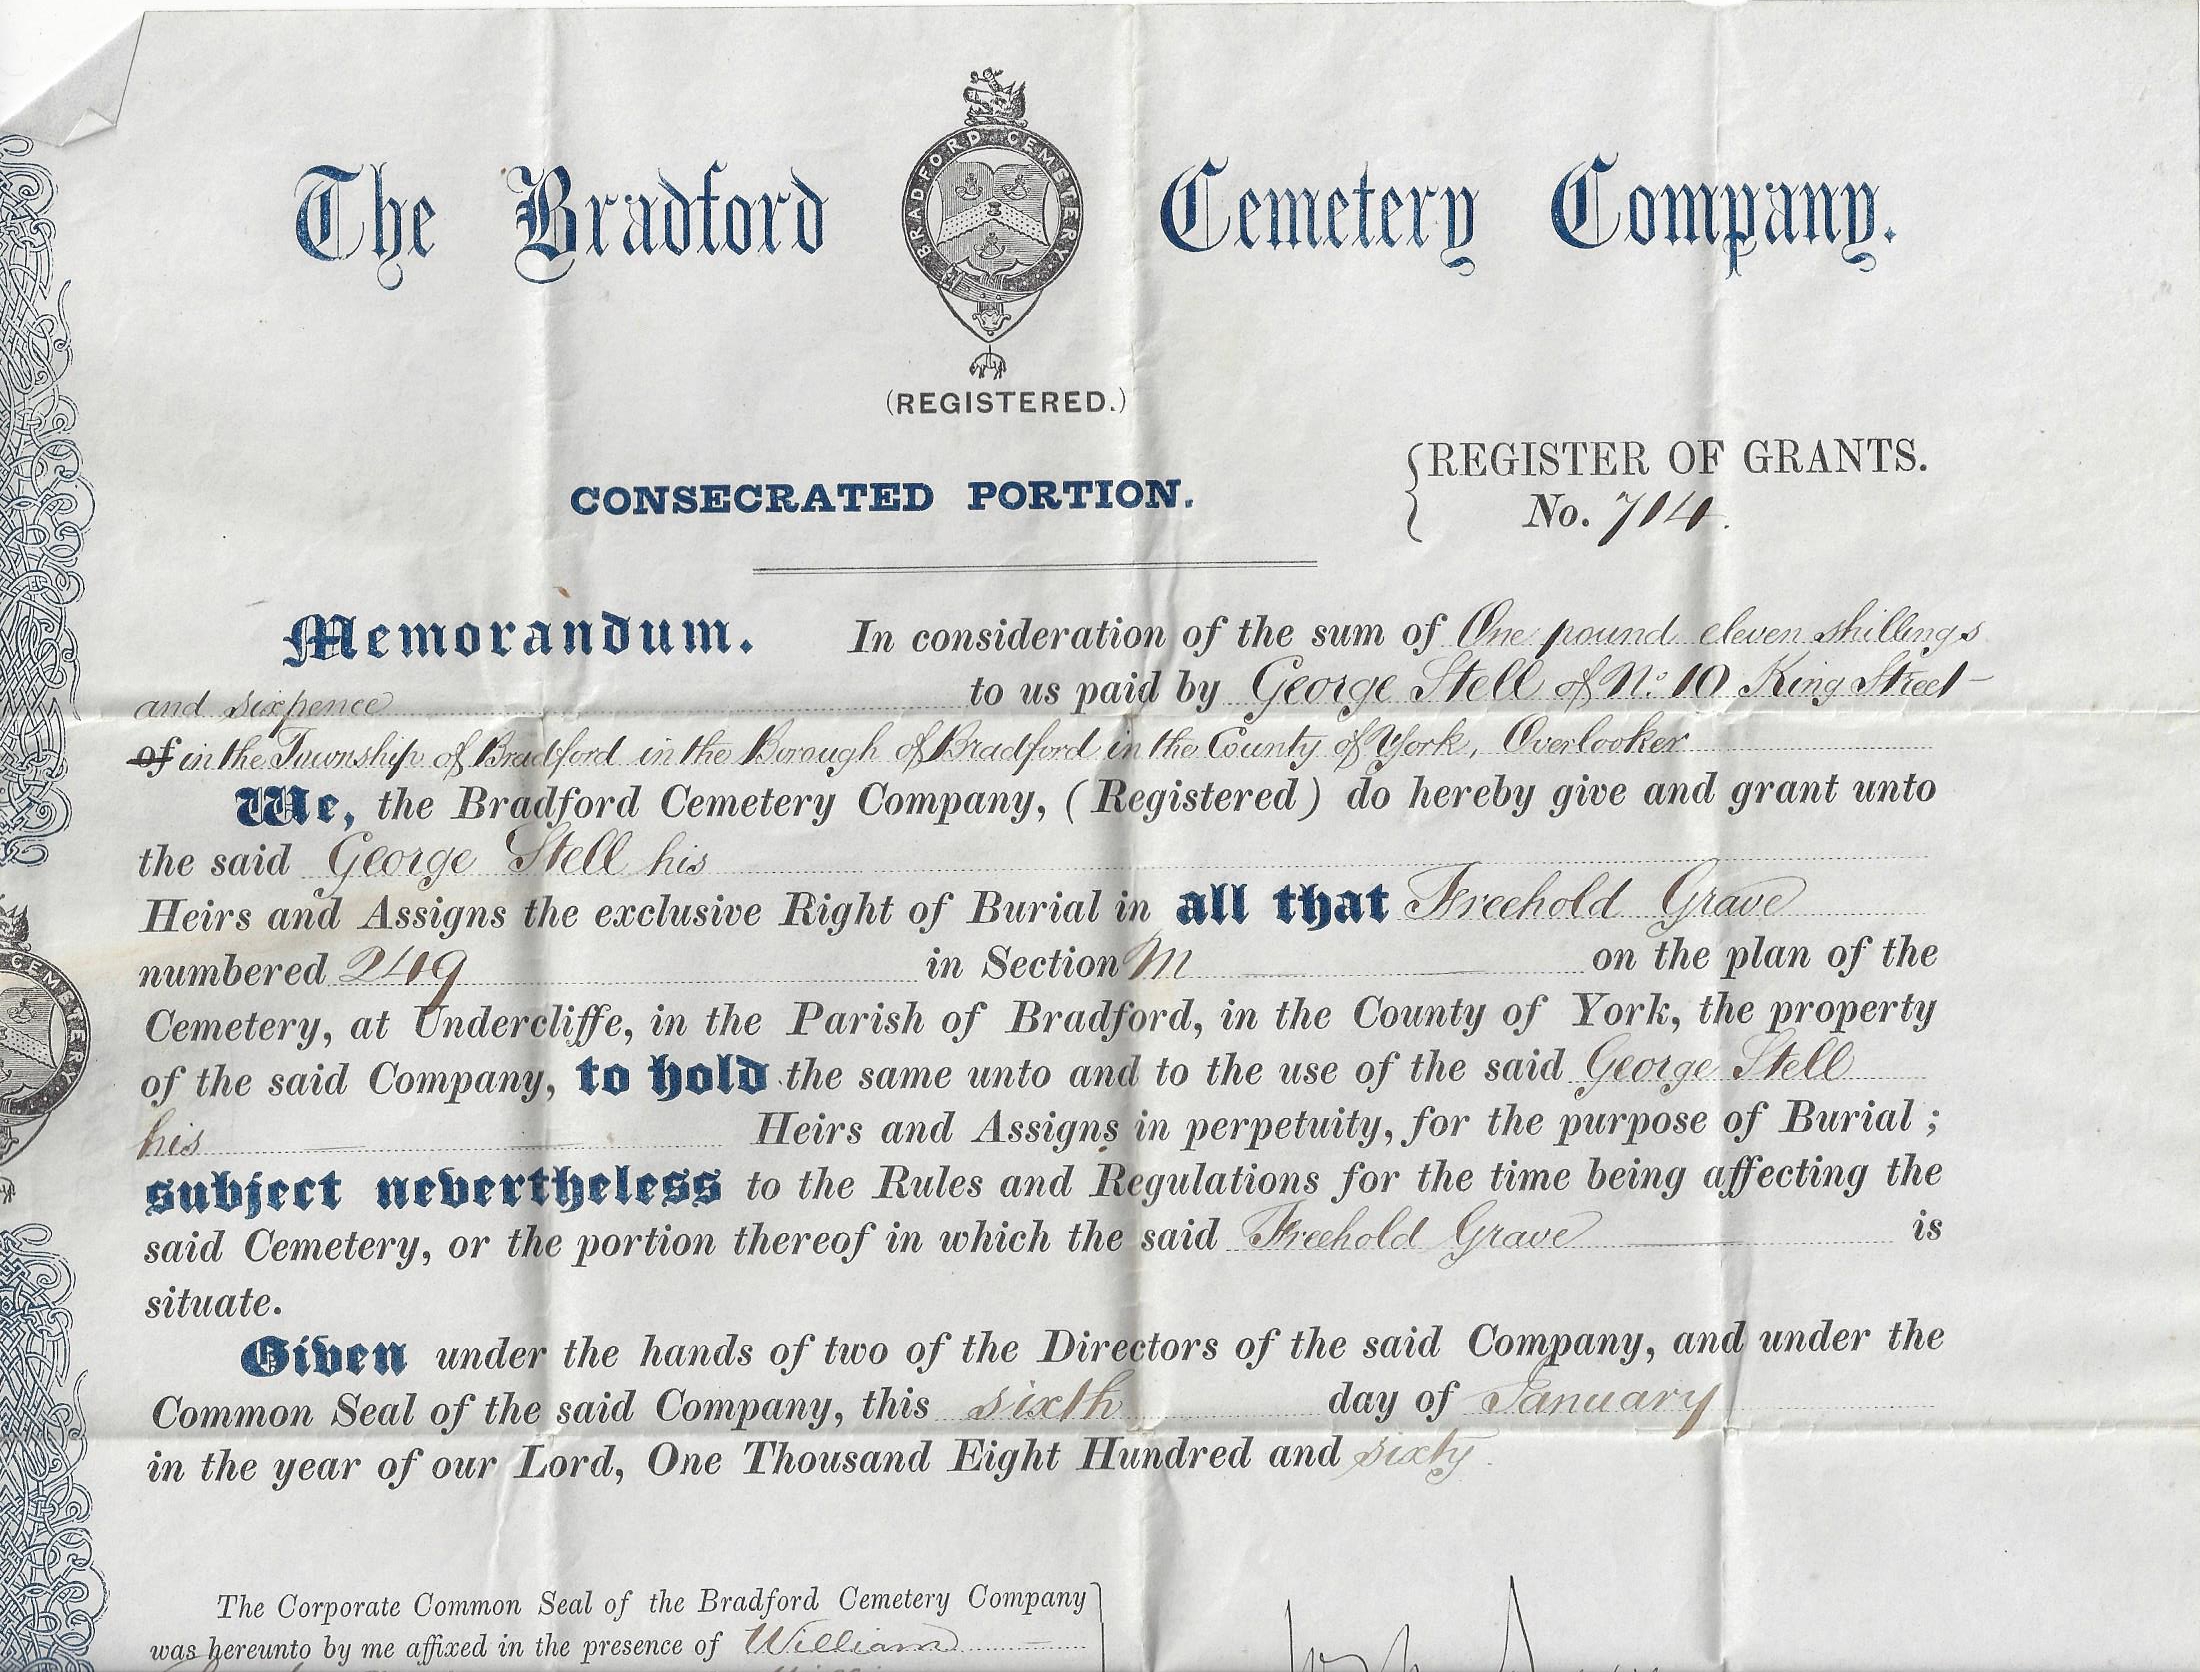 The Bradford Cemetery Company.
BRADFORD CEMETERY
(REGISTERED.)
REGISTER OF GRANTS.
CONSECRATED PORTION.
No. 714.
Memorandum. In consideration of the sum of One pound eleven shillings
and sixpence to us paid by George Stell of No. 10 King Street
of in the Township of Bradford in the Borough of Bradford in the County of York, Overlooker
We, the Bradford Cemetery Company, (Registered) do hereby give and grant unto
the said George Stell his
Heirs and Assigns the exclusive Right of Burial in all that Freehold Grave
numbered 249 in Section M on the plan of the
Cemetery, at Undercliffe, in the Parish of Bradford, in the County of York, the property
of the said Company, to hold the same unto and to the use of the said George Stell
his Heirs and Assigns in perpetuity, for the purpose of Burial ;
subject nevertheless to the Rules and Regulations for the time being affecting the
said Cemetery, or the portion thereof in which the said Freehold Grave is
situate.
Given under the hands of two of the Directors of the said Company, and under the
Common Seal of the said Company, this sixth day of January
in the year of our Lord, One Thousand Eight Hundred and sixty.
The Corporate Common Seal of the Bradford Cemetery Company
was hereunto by me affixed in the presence of William
CEMETERY